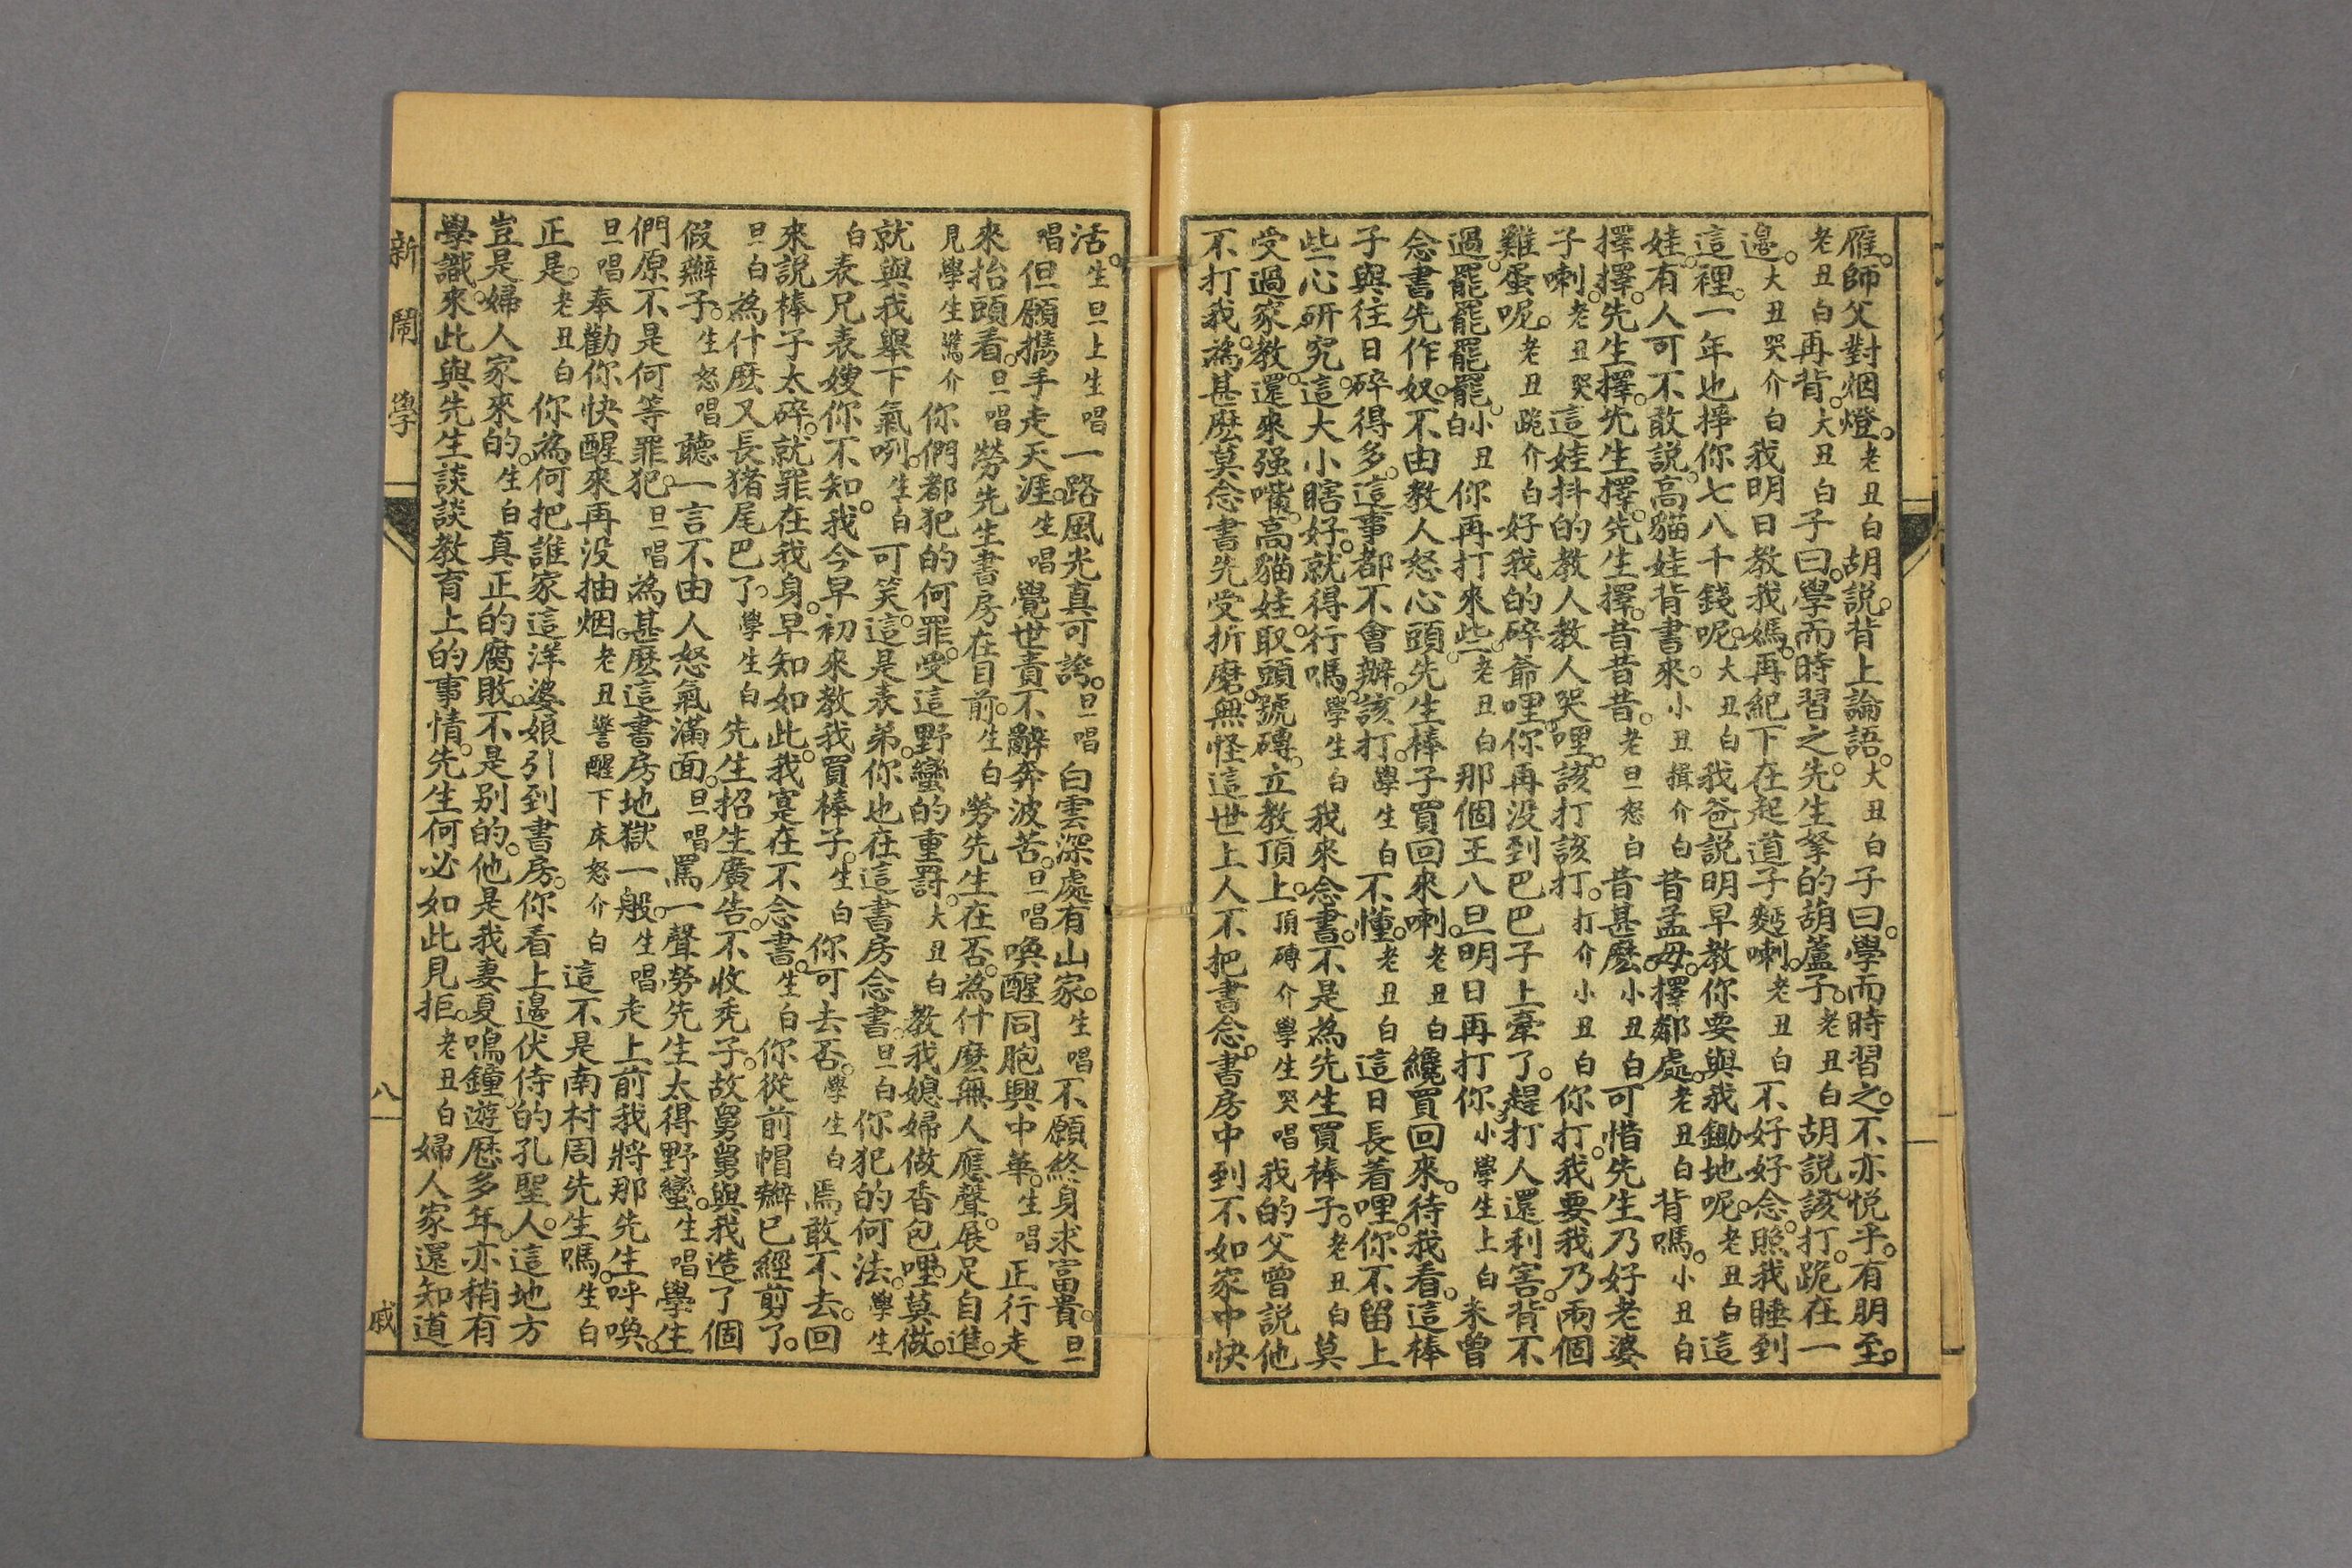 雁。師父對烟燈。老丑白胡說。背上論語。大丑白子曰。學而時習之。不亦悅乎。有朋至。
老丑白再背。大丑白子曰。學而時習之。先生拏的葫蘆子。老丑白胡說。該打。跪在一
邊。大丑哭介白我明日教我媽。再紀下在起道子麪喇。老丑白不好好念。照我睡到
這裡。一年也掙你七八千錢呢。大丑白我爸說明早教你要與我鋤地呢。老丑白這
娃。有人可不敢說。高貓娃背書來。小丑揖介白昔孟母。擇鄰處。老丑白背嗎。小丑白
擇擇。先生擇。先生擇。先生擇。昔昔昔。老旦怒白昔甚麽。小丑白可惜先生乃好老婆
子喇。老丑哭這娃抖的教人教人哭哩。該打該打。打介小丑白你打。我要我乃兩個
雞蛋呢。老丑跪介白好我的碎爺哩。你再沒到巴巴子上牽了。趕打人還利害。背不
過。罷罷罷罷。小丑白你再打來些。老丑白那個王八旦明日再打你。小學生上白未曾
念書先作奴。不由教人怒心頭。先生棒子買回來喇。老丑白纔買回來。待我看。這棒
子與往日碎得多。這事都不會辦。該打。學生白不懂。老丑白這日長着哩。你不留上
些心研究。這大小瞎好。就得行嗎。學生白我來念書。不是為先生買棒子。老丑白莫
受過家教。還來强嘴。高貓娃。取頭號磚。立教頂上。頂磚介學生哭唱我的父曾說他
不打我。為甚麽莫念書先受折磨。無怪這世上人不把書念。書房中到不如家中快
活。生旦上生唱一路風光真可誇。旦唱白雲深處有山家。生唱不願終身求富貴。旦
唱但願擕手走天涯。生唱覺世責不辭奔波苦。旦唱喚醒同胞興中華。生唱正行走
來抬頭看。旦唱勞先生書房在目前。生白勞先生在否。為什麽無人應聲。展足自進。
見學生驚介你們都犯的何罪。受這野蠻的重罸。大丑白教我媳婦做香包哩。莫做。
就與我舉下氣咧。生白可笑。這是表弟。你也在這書房念書。旦白你犯的何法。學生
白表兄表嫂你不知。我今早初來教我買棒子。生白你可去否。學生白焉敢不去。回
來說棒子太碎。就罪在我身。早知如此。我寔在不念書。生白你從前帽辮已經剪了。
旦白為什麽又長猪尾巴了。學生白先生招生廣告。不收禿子。故舅舅與我造了個
假辮子。生怒唱聽一言不由人怒氣滿面。旦唱罵一聲勞先生太得野蠻。生唱學生
們原不是何等罪犯。旦唱為甚麽這書房地獄一般。生唱走上前我將那先生呼喚。
旦唱奉勸你快醒來再沒抽烟。老丑警醒下床怒介白這不是南村周先生嗎。生白
正是。老丑白你為何把誰家這洋婆娘引到書房。你看上邊伏侍的孔聖人。這地方
豈是婦人家來的。生白真正的腐敗。不是别的。他是我妻夏鳴鐘。遊歷多年。亦稍有
學識。來此與先生談談教育上的事情。先生何必如此見拒。老丑白婦人家還知道
新鬧學
八
戚